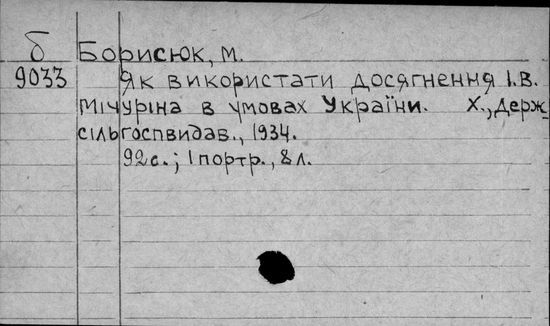 б Борисюк, М.
9033 Як використати досягнення І.В.
Мічуріна в умовах України. Х., Держ-
сільгоспвидав., 1934.
92с.; 1 портр., 8 л.